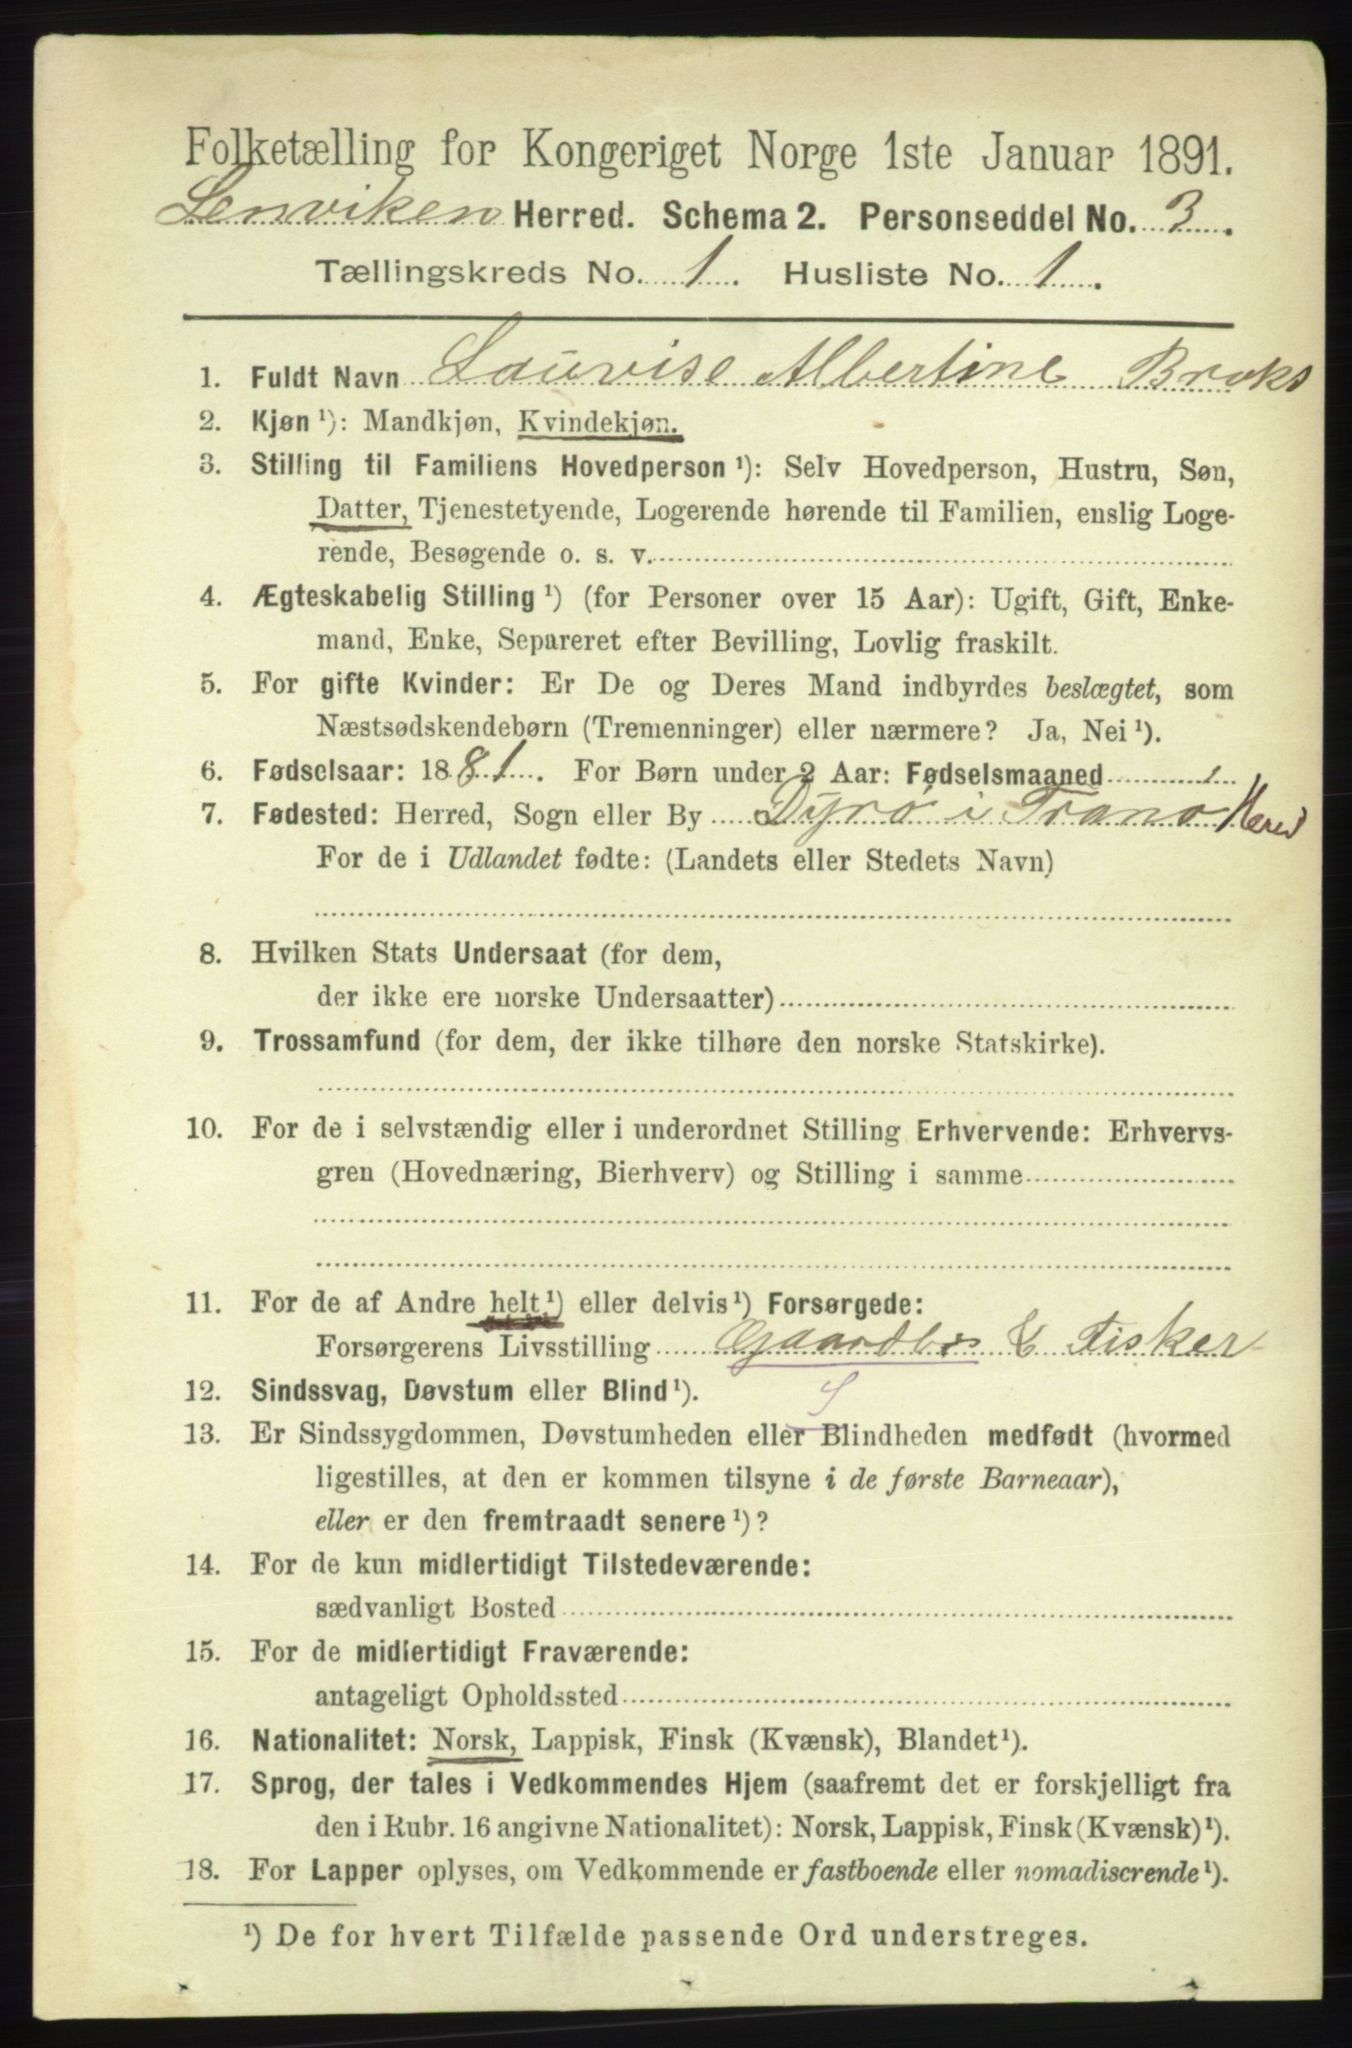 Folketælling for Kongeriget Norge 1ste Januar 1891.
Lenviken Herred. Schema 2. Personseddel No. 3.
Tællingskreds No. 1. Husliste No. 1.
1. Fuldt Navn Lauvise Albertine Broks
2. Kjøn ¹): Mandkjøn, Kvindekjøn.
3. Stilling til Familiens Hovedperson ¹): Selv Hovedperson, Hustru, Søn,
Datter, Tjenestetyende, Logerende hørende til Familien, enslig Loge-
rende, Besøgende o. s. v.
4. Ægteskabelig Stilling ¹) (for Personer over 15 Aar): Ugift, Gift, Enke-
mand, Enke, Separeret efter Bevilling, Lovlig fraskilt.
5. For gifte Kvinder: Er De og Deres Mand indbyrdes beslægtet, som
Næstsødskendebørn (Tremenninger) eller nærmere? Ja, Nei ¹).
6. Fødselsaar: 1881. For Børn under 2 Aar: Fødselsmaaned
7. Fødested: Herred, Sogn eller By Dyrö i Tranö Herred
For de i Udlandet fødte: (Landets eller Stedets Navn)
8. Hvilken Stats Undersaat (for dem,
der ikke ere norske Undersaatter)
9. Trossamfund (for dem, der ikke tilhøre den norske Statskirke).
10. For de i selvstændig eller i underordnet Stilling Erhvervende: Erhvervs-
gren (Hovednæring, Bierhverv) og Stilling i samme
11. For de af Andre helt ¹) eller delvis ¹) Forsørgede:
Forsørgerens Livsstilling Gaardbr & Fisker
S
12. Sindssvag, Døvstum eller Blind ¹).
13. Er Sindssygdommen, Døvstumheden eller Blindheden medfødt (hvormed
ligestilles, at den er kommen tilsyne i de første Barneaar),
eller er den fremtraadt senere ¹)?
14. For de kun midlertidigt Tilstedeværende:
sædvanligt Bosted
15. For de midlertidigt Fraværende:
antageligt Opholdssted
16. Nationalitet: Norsk, Lappisk, Finsk (Kvænsk), Blandet ¹).
17. Sprog, der tales i Vedkommendes Hjem (saafremt det er forskjelligt fra
den i Rubr. 16 angivne Nationalitet): Norsk, Lappisk, Finsk (Kvænsk) ¹).
18. For Lapper oplyses, om Vedkommende er fastboende eller nomadiserende ¹).
¹) De for hvert Tilfælde passende Ord understreges.